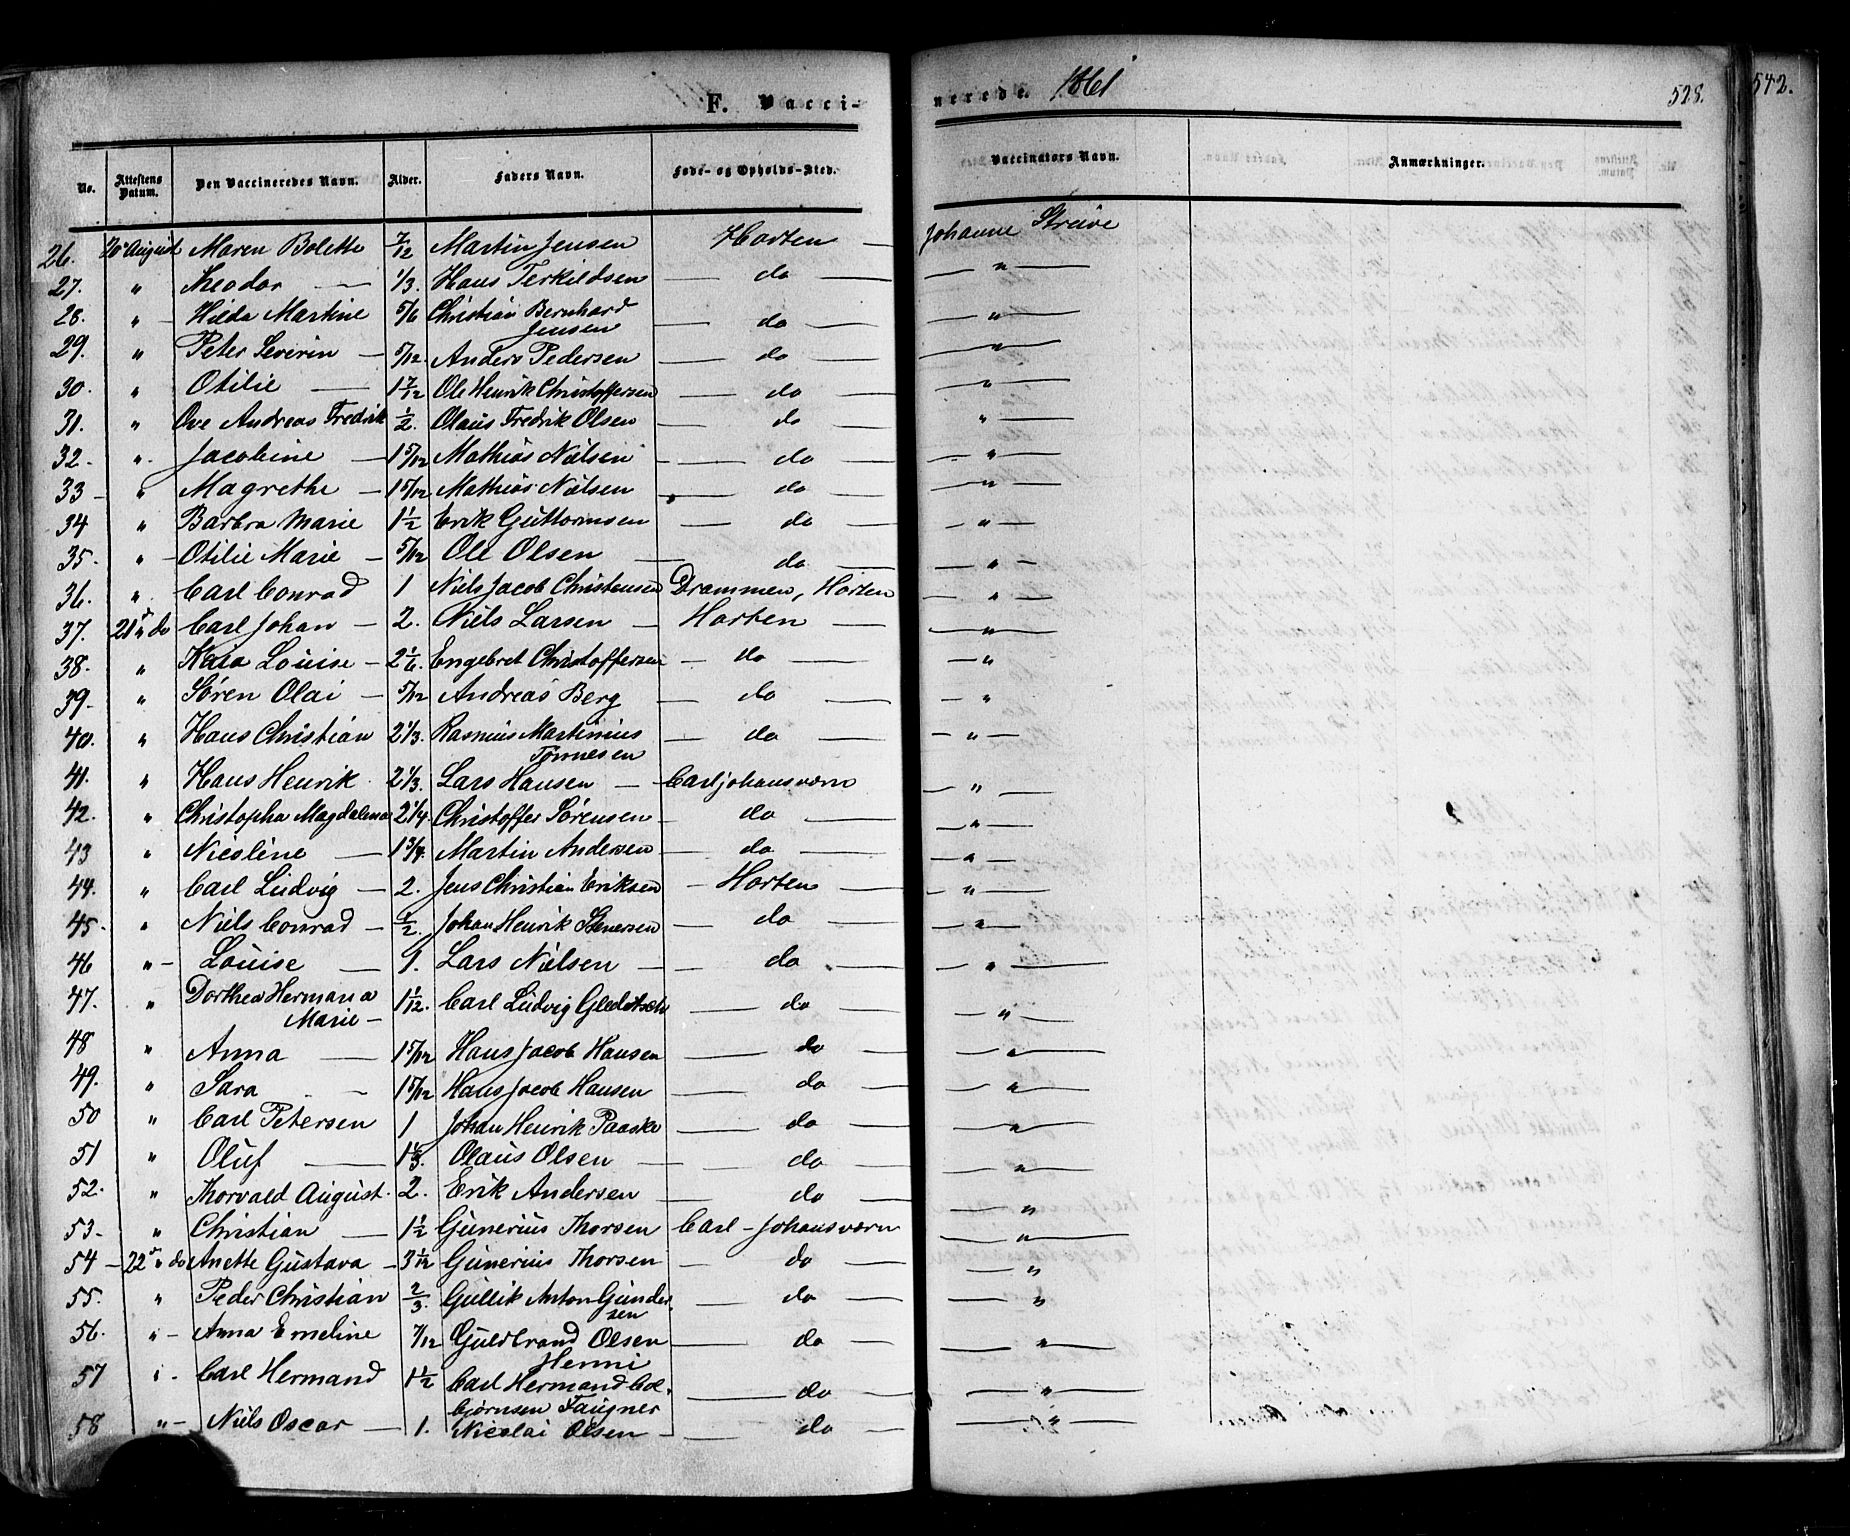 F. Vacci-
nerede. 1861
528.
542.
No. Attestens Datum. Den Vaccineredes Navn. Alder. Faders Navn. Føde- og Opholds-Sted. Vaccinators Navn. Anmærkninger.
26. 20 August Maren Bolette 7/12 Martin Jensen Horten — Johanne Struve
27. " Theodor — 1/3 Hans Terkildsen — do — " —
28. " Hilda Martine 5/6 Christian Bernhard Jensen — do — — " —
29. " Peter Severin — 5/12 Anders Pedersen — do — — " —
30. " Otilie — 1 7/12 Ole Henrik Christoffersen — do — — " —
31. " Ove Andreas Fredrik 1/2 Olaus Fredrik Olsen — do — — " —
32. " Jacobine — 1 5/12 Mathias Nielsen — do — — " —
33 " Magrethe — 1 5/12 Mathias Nielsen — do — — " —
34 " Barbra Marie 1 1/2 Erik Guttormsen — do — — " —
35. " Otilie Marie — 5/12 Ole Olsen — do — — " —
36. " Carl Conrad 1 Niels Jacob Christensen Drammen, Horten — " —
37. 21 " do Carl Johan — 2. Niels Larsen — Horten — — " —
38. " Louise — 2 1/6. Engebret Christoffersen — do — — "
39. " Søren Olai — 5/12 Andreas Berg — do — — "
40. " Hans Christian 2 1/3. Rasmus Martinius Tønnesen — do — — " —
41. " Hans Henrik 2 1/3. Lars Hansen — Carljohansværn — " —
42. " Christopha Magdalena 2 1/4. Christoffer Sørensen — do — — " —
43 " Nicoline — 1 3/4. Martin Andersen — do — — " —
44. " Carl Ludvig — 2. Jens Christian Eriksen — Horten — — " —
45. " Niels Conrad — 1/2. Johan Henrik Stenersen — do — — " —
46 " — Louise — 1. Lars Nielsen — do — — " —
47. " Dorthea Hermana Marie — 1 1/12. Carl Ludvig Gleditsch — do — — " —
48 " Anna — 1 5/12 Hans Jacob Hansen — do — — " —
49. " Sara — 1 5/12 Hans Jacob Hansen — do — — " —
50 " Carl Petersen 1 Johan Henrik Paaske — do — — " —
51 " Oluf — 1 1/3. Olaus Olsen — do — — " —
52. " Thorvald August. 2. Erik Andersen — do — — "
53. " Christian — 1 1/2 Gunerius Thorsen Carl-Johansværn — " —
54 — 22 " do Anette Gustava — 3 1/12 Gunerius Thorsen — do — — "
55. " Peder Christian 2/3. Gullik Anton Gundersen — do — — "
56. " — Anna Emeline 7/12 Guldbrand Olsen — do — — " —
57 " - Carl Hermand 1 1/2 Henni Carl Hermand Col-bjørnsen Faugner — do — — " —
58 " — Niels Oscar — 1. Nicolai Olsen — do — — " —